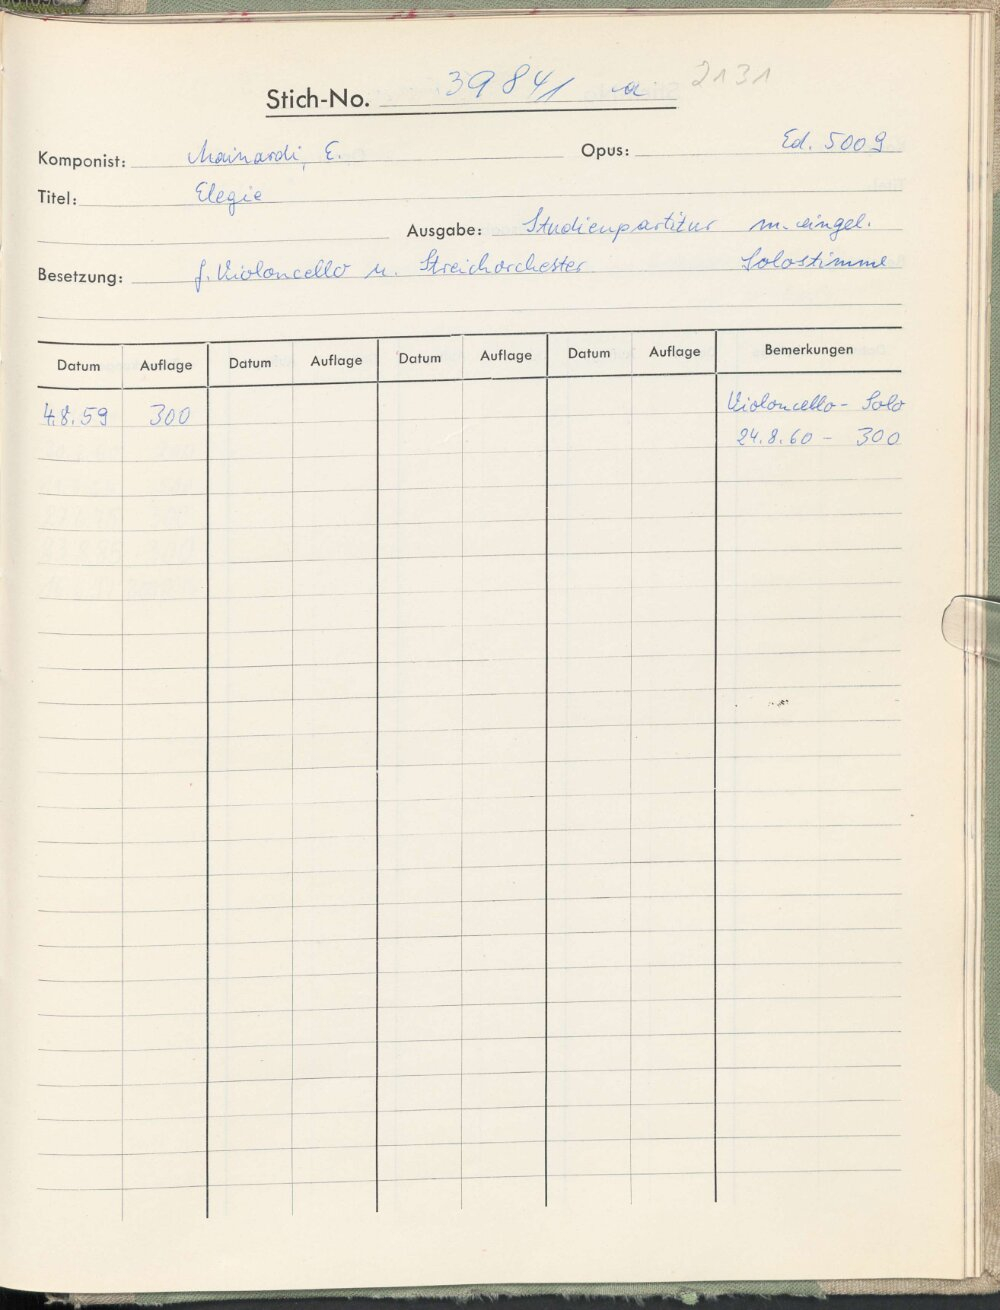 Stich-No. 39841 a 2131
Komponist: Mainardi, E. Opus: Ed. 5009
Titel: Elegie
Ausgabe: Studienpartitur m. eingel.
Besetzung: f. Violoncello u. Streichorchester Solostimme
Datum Auflage Datum Auflage Datum Auflage Datum Auflage Bemerkungen
4.8.59 300 Violoncello - Solo
24.8.60 - 300